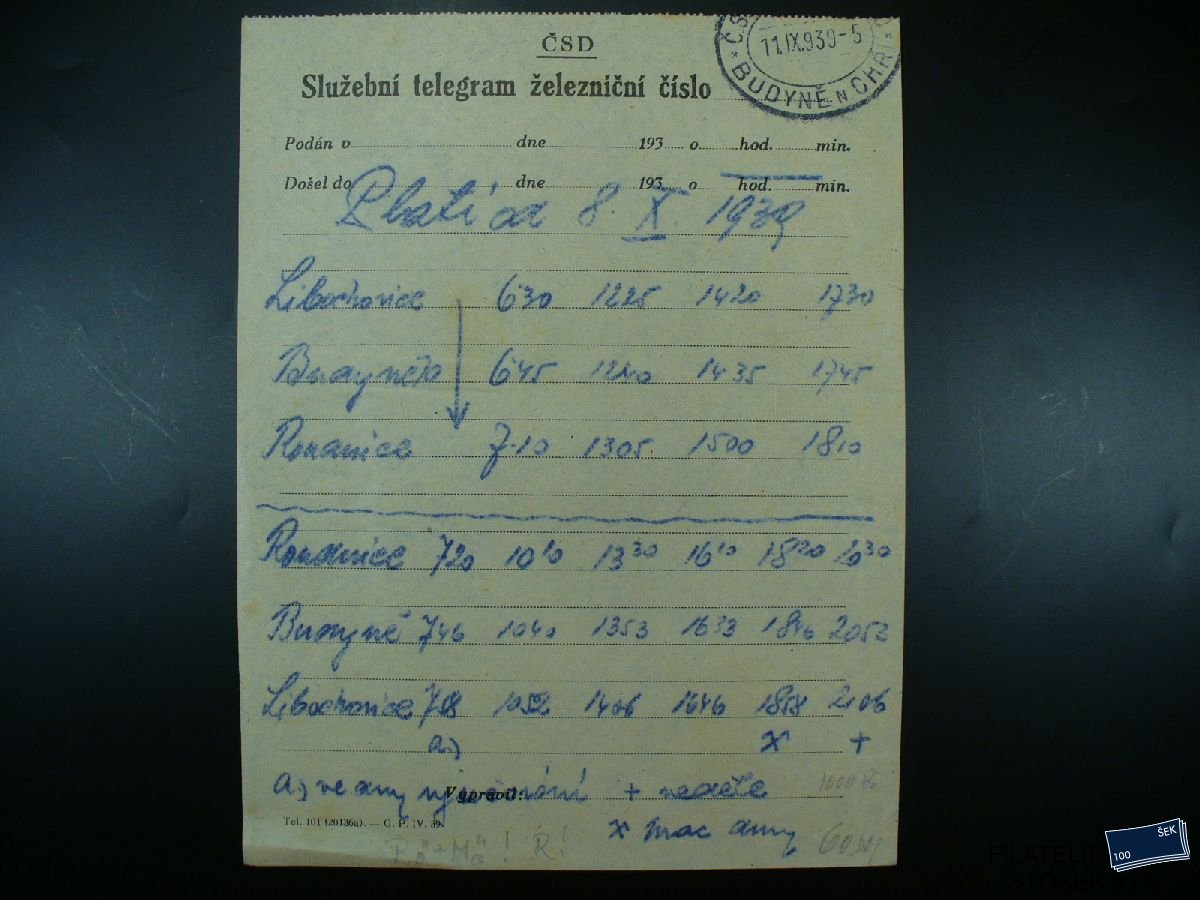 ČSD
Služební telegram železniční číslo
ČS
11.IX.939-5
* BUDYNĚ N OHŘÍ *
Podán v dne 193 o hod. min.
Došel do dne 193 o hod. min.
Platí od 8. X. 1939
Libochovice 630 1225 1420 1730
Budyně 645 1240 1435 1745
Roudnice 7.10 1305 1500 1810
Roudnice 720 1010 1330 1610 1820 2030
Budyně 746 1040 1353 1633 1846 2052
Libochovice 758 1052 1406 1646 1858 2106
a) x +
a) ve dny + neděle
Vypravil:
x prac dny
Tel. 101 (20136a). — G. P. IV. 39.
FILATELIE
STOSEK s.r.o.
100 ŠEK